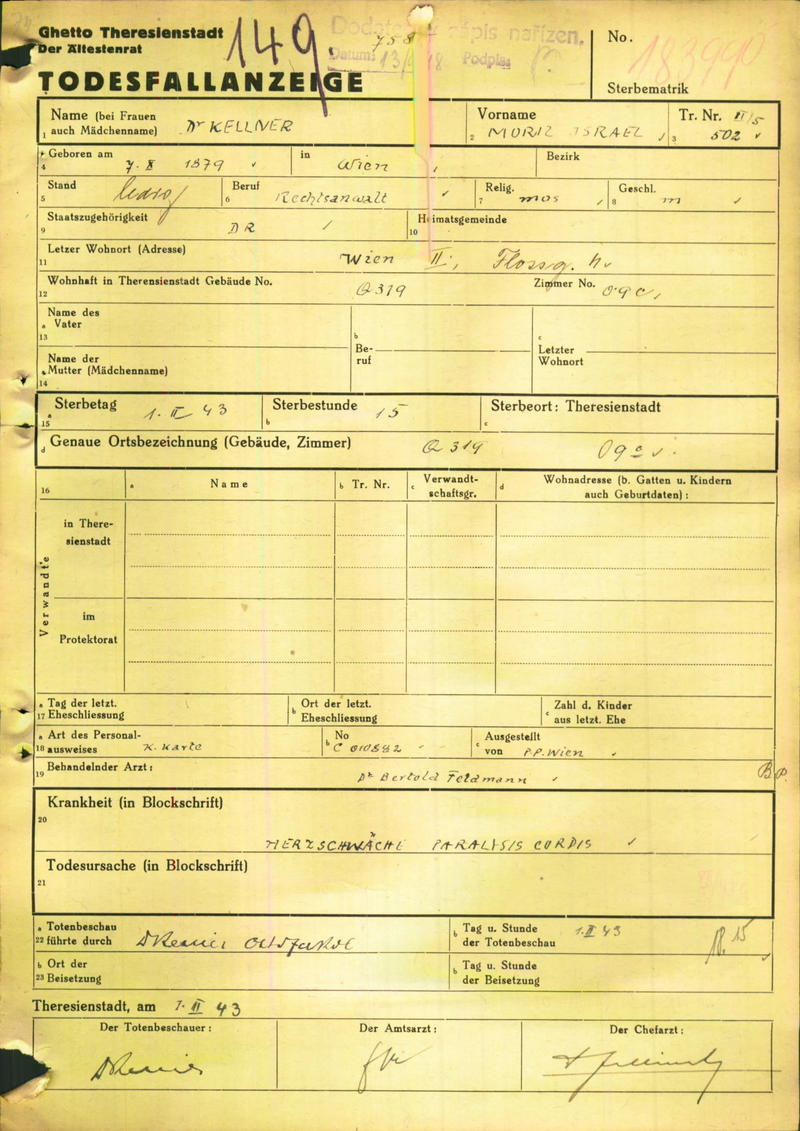 Ghetto Theresienstadt
Der Ältestenrat
149.
758
Dodatečný zápis nařízen.
Datum: Podpis:
No.
183990
TODESFALLANZEIGE
Sterbematrik
Name (bei Frauen auch Mädchenname)
1
Dr KELLNER
Vorname
2
MORIZ ISRAEL
Tr. Nr.
3
502
Geboren am
4
1879
in
Wien
Bezirk
Stand
5
ledig
Beruf
6
Rechtsanwalt
Relig.
7
mos
Geschl.
8
m
Staatszugehörigkeit
9
DR
Heimatsgemeinde
10
Letzer Wohnort (Adresse)
11
Wien II,
Wohnhaft in Therensienstadt Gebäude No.
12
Q319
Zimmer No.
09c
Name des
a Vater
13
b
Be-
ruf
c
Letzter
Wohnort
Name der
Mutter (Mädchenname)
14
a Sterbetag
15
1. II 43
b Sterbestunde
15
c Sterbeort: Theresienstadt
d Genaue Ortsbezeichnung (Gebäude, Zimmer)
Q 319
09c
16
a Name
b Tr. Nr.
c Verwandt-
schaftsgr.
d Wohnadresse (b. Gatten u. Kindern
auch Geburtdaten):
Verwandte
in There-
sienstadt
im
Protektorat
a Tag der letzt.
17 Eheschliessung
b Ort der letzt.
Eheschliessung
c Zahl d. Kinder
aus letzt. Ehe
a Art des Personal-
18 ausweises
K. Karte
b No
C 010882
c Ausgestellt
von
PP. Wien
Behandelnder Arzt:
19
Dr Bertold Feldmann
Krankheit (in Blockschrift)
20
HERZSCHWÄCHE PARALYSIS CORDIS
Todesursache (in Blockschrift)
21
a Totenbeschau
22 führte durch
b Tag u. Stunde
der Totenbeschau
1. II 43
18.15
b Ort der
23 Beisetzung
b Tag u. Stunde
der Beisetzung
Theresienstadt, am 1. II 43
Der Totenbeschauer:
Der Amtsarzt:
Der Chefarzt: